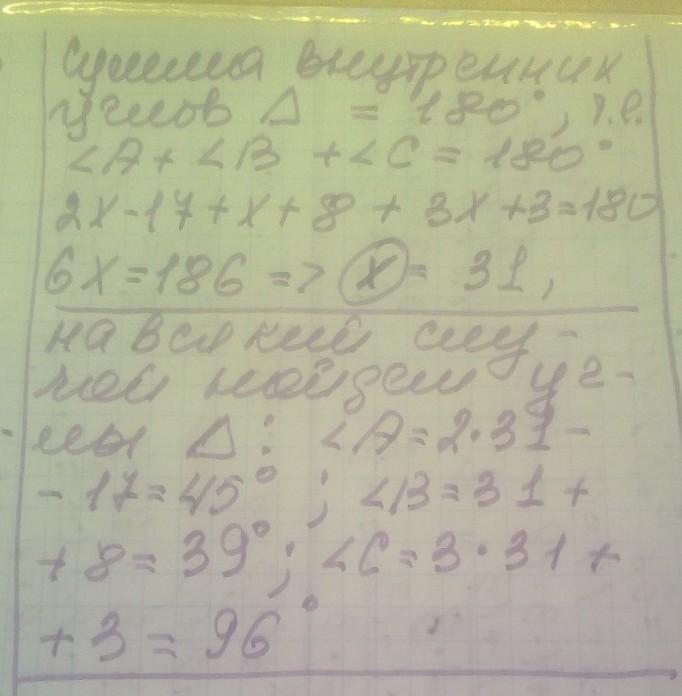 Сумма внутренних
углов Δ = 180°, т.е.
∠A + ∠B + ∠C = 180°
2x-17+x+8 + 3x+3=180
6x=186 => x = 31,
на всякий слу-
чай найдем уг-
лы Δ: ∠A=2·31-
- 17=45°; ∠B=31+
+8=39°; ∠C=3·31+
+3=96°